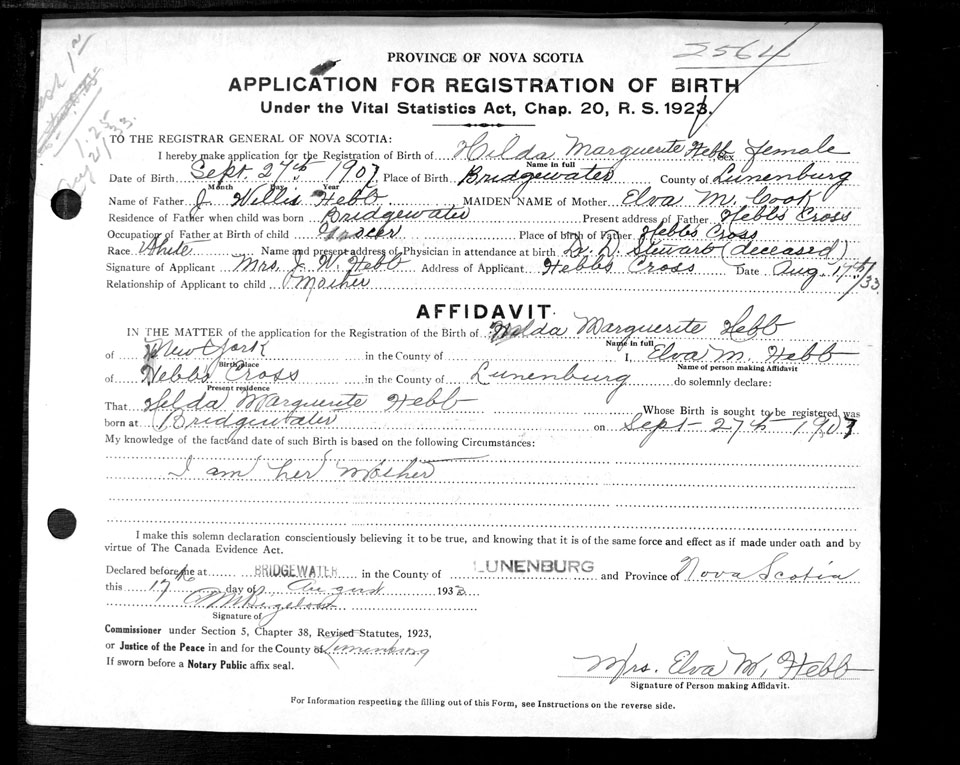 2564
PROVINCE OF NOVA SCOTIA
APPLICATION FOR REGISTRATION OF BIRTH
Under the Vital Statistics Act, Chap. 20, R. S. 1923.
1.25
Aug 21/33.
TO THE REGISTRAR GENERAL OF NOVA SCOTIA:
I hereby make application for the Registration of Birth of Hilda Marguerite Hebb Sex female
Name in full
Date of Birth Sept. 27th 1907 Place of Birth Bridgewater County of Lunenburg
Month Day Year
Name of Father J. Willis Hebb MAIDEN NAME of Mother Elva M. Cook
Residence of Father when child was born Bridgewater Present address of Father Hebbs Cross
Occupation of Father at Birth of child Grocer Place of birth of Father Hebbs Cross
Race White Name and present address of Physician in attendance at birth Dr. D. Stewart (deceased)
Signature of Applicant Mrs. J. W. Hebb Address of Applicant Hebbs Cross Date Aug. 17th/33.
Relationship of Applicant to child Mother
AFFIDAVIT.
IN THE MATTER of the application for the Registration of the Birth of Hilda Marguerite Hebb
Name in full
of New York in the County of I, Elva M. Hebb
Birth place Name of person making Affidavit
of Hebbs Cross in the County of Lunenburg do solemnly declare:
Present residence
That Hilda Marguerite Hebb Whose Birth is sought to be registered was
born at Bridgewater on Sept- 27th 1907
My knowledge of the fact and date of such Birth is based on the following Circumstances:
I am her Mother
I make this solemn declaration conscientiously believing it to be true, and knowing that it is of the same force and effect as if made under oath and by
virtue of The Canada Evidence Act.
Declared before me at BRIDGEWATER in the County of LUNENBURG and Province of Nova Scotia
this 17th day of August 1933
Signature of
Commissioner under Section 5, Chapter 38, Revised Statutes, 1923,
or Justice of the Peace in and for the County of Lunenburg
If sworn before a Notary Public affix seal.
Mrs. Elva M. Hebb
Signature of Person making Affidavit.
For Information respecting the filling out of this Form, see Instructions on the reverse side.